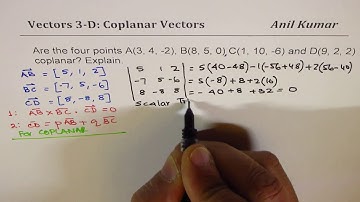 Vectors 3-D: Coplanar Vectors Anil Kumar
Are the four points A(3, 4, -2), B(8, 5, 0), C(1, 10, -6) and D(9, 2, 2)
coplanar? Explain.
AB = [5, 1, 2]
BC = [-7, 5, -6]
CD = [8, -8, 8]
1: AB × BC · CD = 0
2: CD = pAB + qBC
FOR COPLANAR
5 1 2 = 5(40-48) -1(-56+48) +2(56-40)
-7 5 -6 = 5(-8) + 8 + 2(16)
8 -8 8 = -40 + 8 + 32 = 0
Scalar Tr